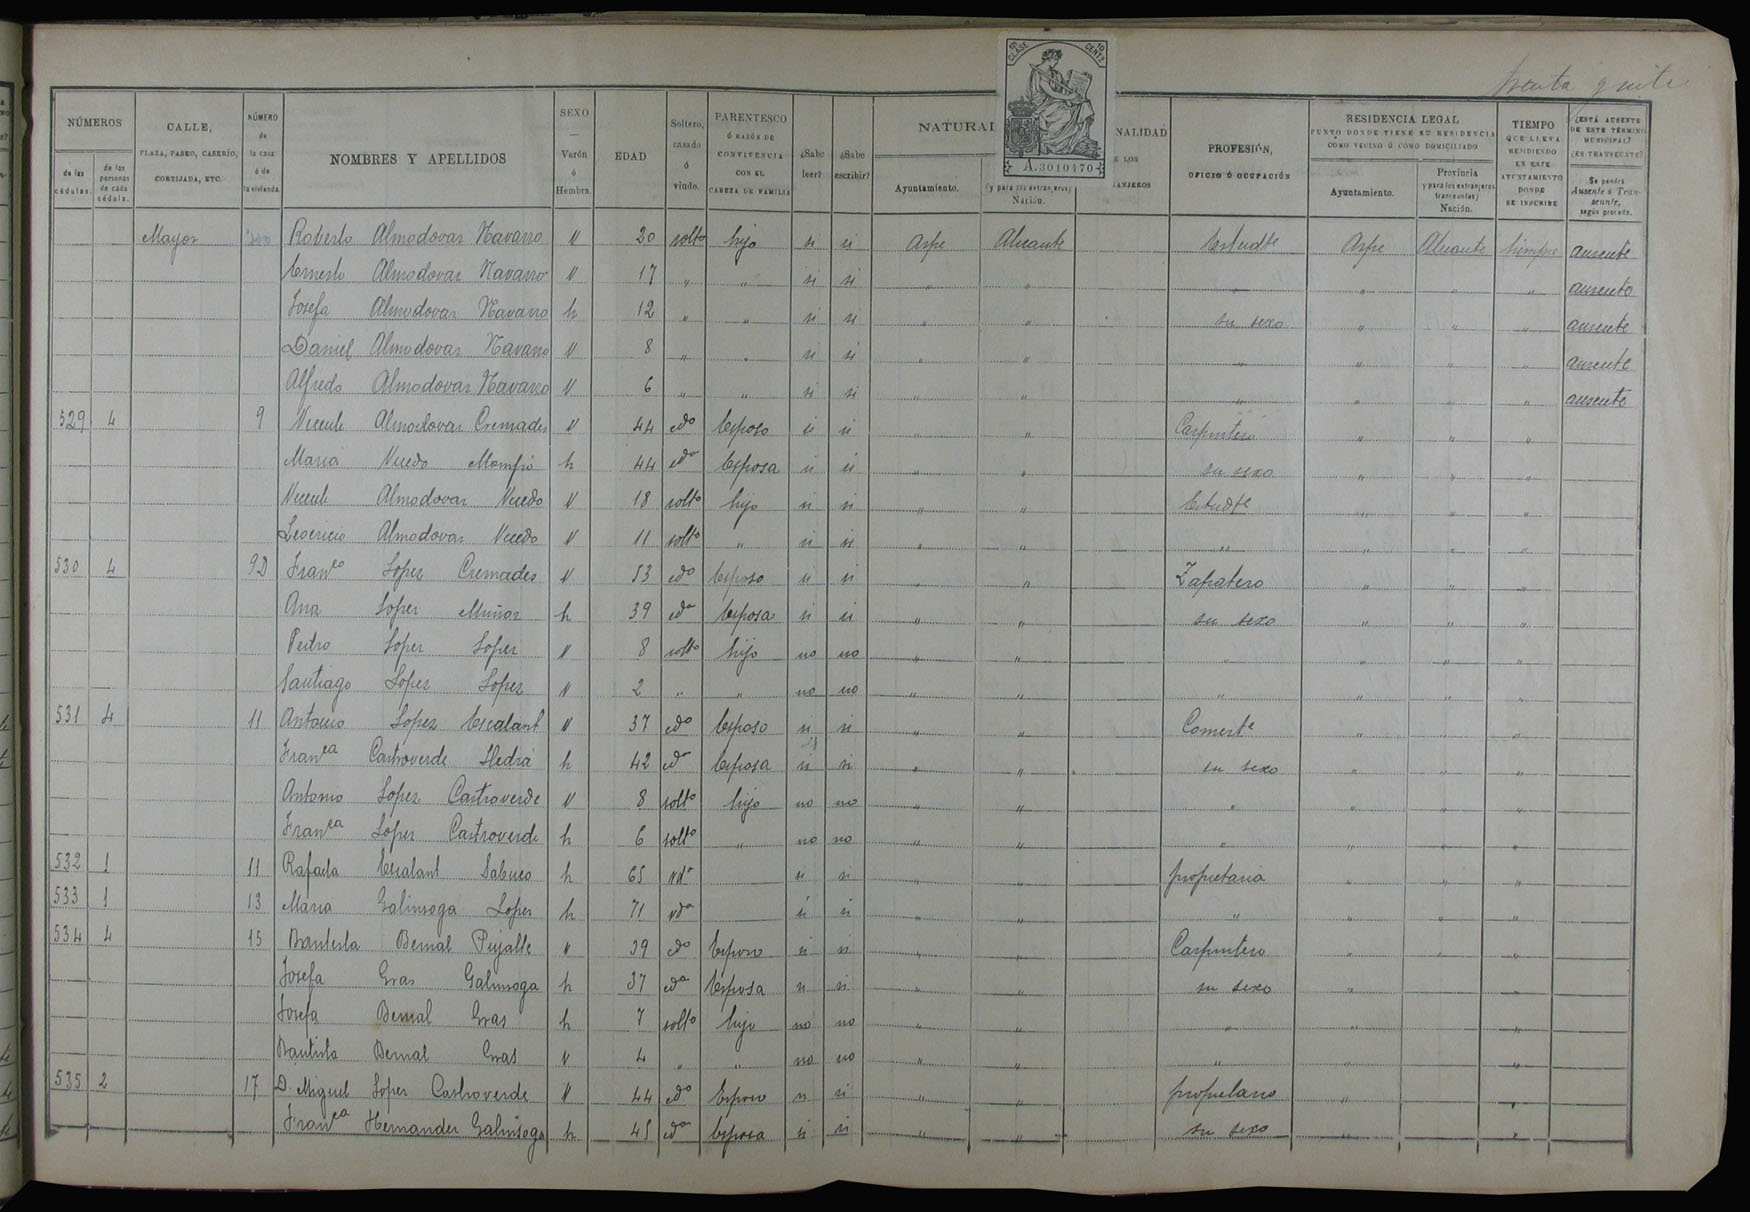 treinta y
8ª CLASE 10 CENTS
A.3010470
NÚMEROS
de las cédulas.
de las personas de cada cédula.
CALLE,
PLAZA, PASEO, CASERÍO, CORTIJADA, ETC.
NÚMERO de la casa ó de la vivienda.
NOMBRES Y APELLIDOS
SEXO — Varón ó Hembra.
EDAD
Soltero, casado ó viudo.
PARENTESCO Ó RAZÓN DE CONVIVENCIA CON EL CABEZA DE FAMILIA
¿Sabe leer?
¿Sabe escribir?
NATURAL
Ayuntamiento.
(y para los extranjeros) Nación.
NALIDAD E LOS ANJEROS
PROFESIÓN, OFICIO Ó OCUPACIÓN
RESIDENCIA LEGAL
PUNTO DONDE TIENE SU RESIDENCIA COMO VECINO Ó COMO DOMICILIADO
Ayuntamiento.
Provincia y para los extranjeros transeuntes) Nación.
TIEMPO QUE LLEVA RESIDIENDO EN ESTE AYUNTAMIENTO DONDE SE INSCRIBE
¿ESTÁ AUSENTE DE ESTE TÉRMINO MUNICIPAL? ¿ES TRANSEUNTE?
Se pondrá Ausente ó Transeunte, según proceda.
Mayor Roberto Almodovar Navarro V 20 solto hijo si si Aspe Alicante Estudte Aspe Alicante siempre ausente
Ernesto Almodovar Navarro V 17 " " si si " " " " " " ausente
Josefa Almodovar Navarro h 12 " " si si " " su sexo " " " ausente
Daniel Almodovar Navarro V 8 " " si si " " " " " " ausente
Alfredo Almodovar Navarro V 6 " " si si " " " " " " ausente
529 4 9 Vicente Almodovar Cremades V 44 cdo Esposo si si " " Carpintero " " "
Maria Vicedo h 44 cda Esposa si si " " su sexo " " "
Vicente Almodovar Vicedo V 18 solto hijo si si " " Estudte " " "
Almodovar Vicedo V 11 solto " si si " " " " " "
530 4 9D Franco Lopez Cremades V 53 cdo Esposo si si " " Zapatero " " "
Ana Lopez Muñoz h 39 cda Esposa si si " " su sexo " " "
Pedro Lopez Lopez V 8 solto hijo no no " " " " " "
Santiago Lopez Lopez V 2 " " no no " " " " " "
531 4 11 Antonio Lopez Escalant V 37 cdo Esposo si si " " Comerte " " "
Franca Castroverde h 42 cda Esposa si si " " su sexo " " "
Antonio Lopez Castroverde V 8 solto hijo no no " " " " " "
Franca López Castroverde h 6 solto " no no " " " " " "
532 1 11 Rafaela Escalant Sabuco h 65 vda si si " " propietaria " " "
533 1 13 Maria Galinsoga Lopez h 71 vda si si " " " " " "
534 4 15 Bautista Bernal Pujalte V 39 cdo Esposo si si " " Carpintero " " "
Josefa Gras Galinsoga h 37 cda Esposa si si " " su sexo " "
Josefa Bernal Gras h 7 solto hijo no no " " " " "
Bautista Bernal Gras V 4 " " no no " " " " "
535 2 17 D. Miguel Lopez Castroverde V 44 cdo Esposo si si " " propietario " "
Franca Hernandez Galinsoga h 45 cda Esposa si si " " su sexo " "